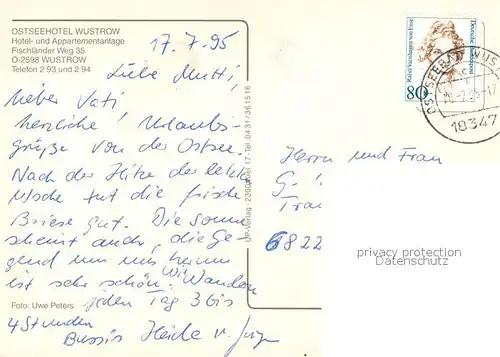 OSTSEEHOTEL WUSTROW
Hotel- und Appartementanlage
Fischländer Weg 35
O-2598 WUSTROW
Telefon 2 93 und 2 94
17.7.95
Liebe Mutti,
lieber Vati!
herzliche Urlaubs-
grüße von der Ostsee.
Nach der Hitze der letzten
Woche tut die frische
Briese gut. Die Sonne
scheint auch, die Ge-
gend um uns herum
ist sehr schön. Wir wandern
jeden Tag 3 bis
4 Stunden
Bussis Heide u.
Foto: Uwe Peters
UP-Verlag - 2300 Kiel 17 - Tel. 04 31 / 36 15 16
Rahel Varnhagen von Ense
Deutsche Bundespost
80
OSTSEEBAD WUST
18347
Herrn und Frau
G
Frau
6822
privacy protection
Datenschutz